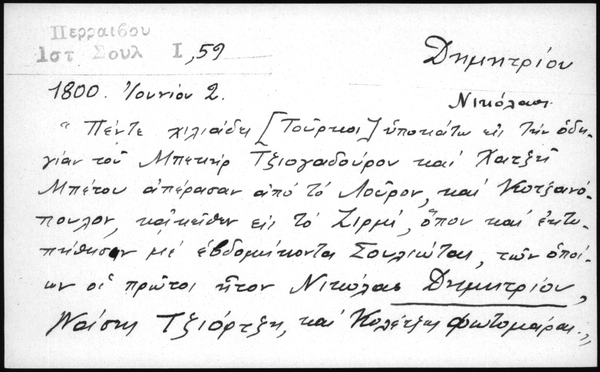 Περραιβου
Ιστ Σουλ Ι, 59
Δημητρίου
1800. Ἰουνίου 2.
Νικόλαος
"Πέντε χιλιάδες [Τοῦρκοι] ὑποκάτω εἰς τὴν ὁδη-
γίαν τοῦ Μπεκὴρ Τζιογαδούρου καὶ Χατζῆ
Μπέτου ἀπέρασαν ἀπὸ τὸ Λοῦρον, καὶ Κοτζανό-
πουλον, κᾀκεῖθεν εἰς τὸ Ζιρμί, ὅπου καὶ ἐκτυ-
πήθησαν μὲ ἑβδομήκοντα Σουλιώτας, τῶν ὁποί-
ων οἱ πρῶτοι ἦτον Νικόλαος Δημητρίου,
Νάσης Τζιόρτζη, καὶ Κολέτζης Φωτομάρας.,,